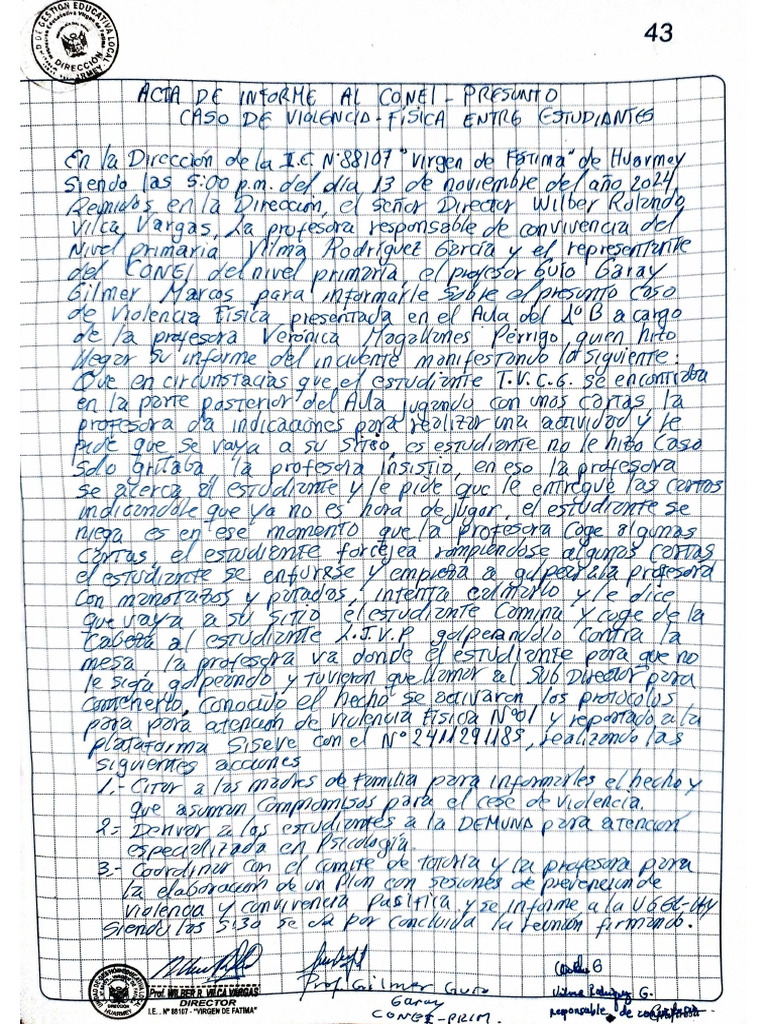 43
UNIDAD DE GESTIÓN EDUCATIVA LOCAL
DIRECCIÓN
HUARMEY
ACTA DE INFORME AL CONEI - PRESUNTO
CASO DE VIOLENCIA - FÍSICA ENTRE ESTUDIANTES
En la Dirección de la I.E. Nº 88107 "Virgen de Fátima" de Huarmey
Siendo las 5:00 p.m. del día 13 de noviembre del año 2024
Reunidos en la Dirección, el señor Director Wilber Rolando
Vilca Vargas, La profesora responsable de convivencia del
Nivel primaria Vilma Rodríguez García y el representante
del CONEI del nivel primaria, el profesor Guio Garay
Gilmer Marcos para informarle sobre el presunto caso
de Violencia Física presentada en el Aula del 1º B a cargo
de la profesora Verónica Magallanes Pérrigo quien hizo
llegar su informe del incidente manifestando lo siguiente:
Que en circunstacias que el estudiante T.V.C.G. se encontraba
en la parte posterior del Aula jugando con unos cartas, la
profesora da indicaciones para realizar una actividad y le
pide que se vaya a su sitio, es estudiante no le hizo caso
solo gritaba, la profesora insistió, en eso la profesora
se acerca al estudiante y le pide que le entregue las cartas
indicandole que ya no es hora de jugar, el estudiante se
niega es en ese momento que la profesora coge algunas
cartas, el estudiante forcejea rompiendose algunas cartas
el estudiante se enfurese y empieza a golpear a la profesora
con manotazos y patadas, intenta calmarlo y le dice
que vaya a su sitio el estudiante camina y coge de la
cabeza al estudiante L.J.V.P golpeandolo contra la
mesa, la profesora va donde el estudiante para que no
le siga golpeando y tuvieron que llamar al Sub Director para
contenerlo, conocido el hecho se activaron los protocolos
para para atención de violencia Física Nº01 y reportado a la
plataforma Siseve con el Nº 2411291185, realizando las
siguientes acciones
1.- Citar a las madres de familia para informarles el hecho y
que asuman compromisos para el cese de violencia.
2.- Derivar a los estudiantes a la DEMUNA para atención
especializada en Psicología.
3.- Coordinar con el comite de tutoría y la profesora para
la elaboración de un plan con sesiones de prevención de
violencia y convivencia pasífica, y se informe a la UGEL-HY
Siendo las 5:30 se da por concluida la reunión firmando.
Prof. WILBER R. VILCA VARGAS
DIRECTOR
I.E. Nº 88107 - "VIRGEN DE FATIMA"
Prof. Gilmer Guio
Garay
CONEI-PRIM.
Vilma Rodríguez G.
responsable de